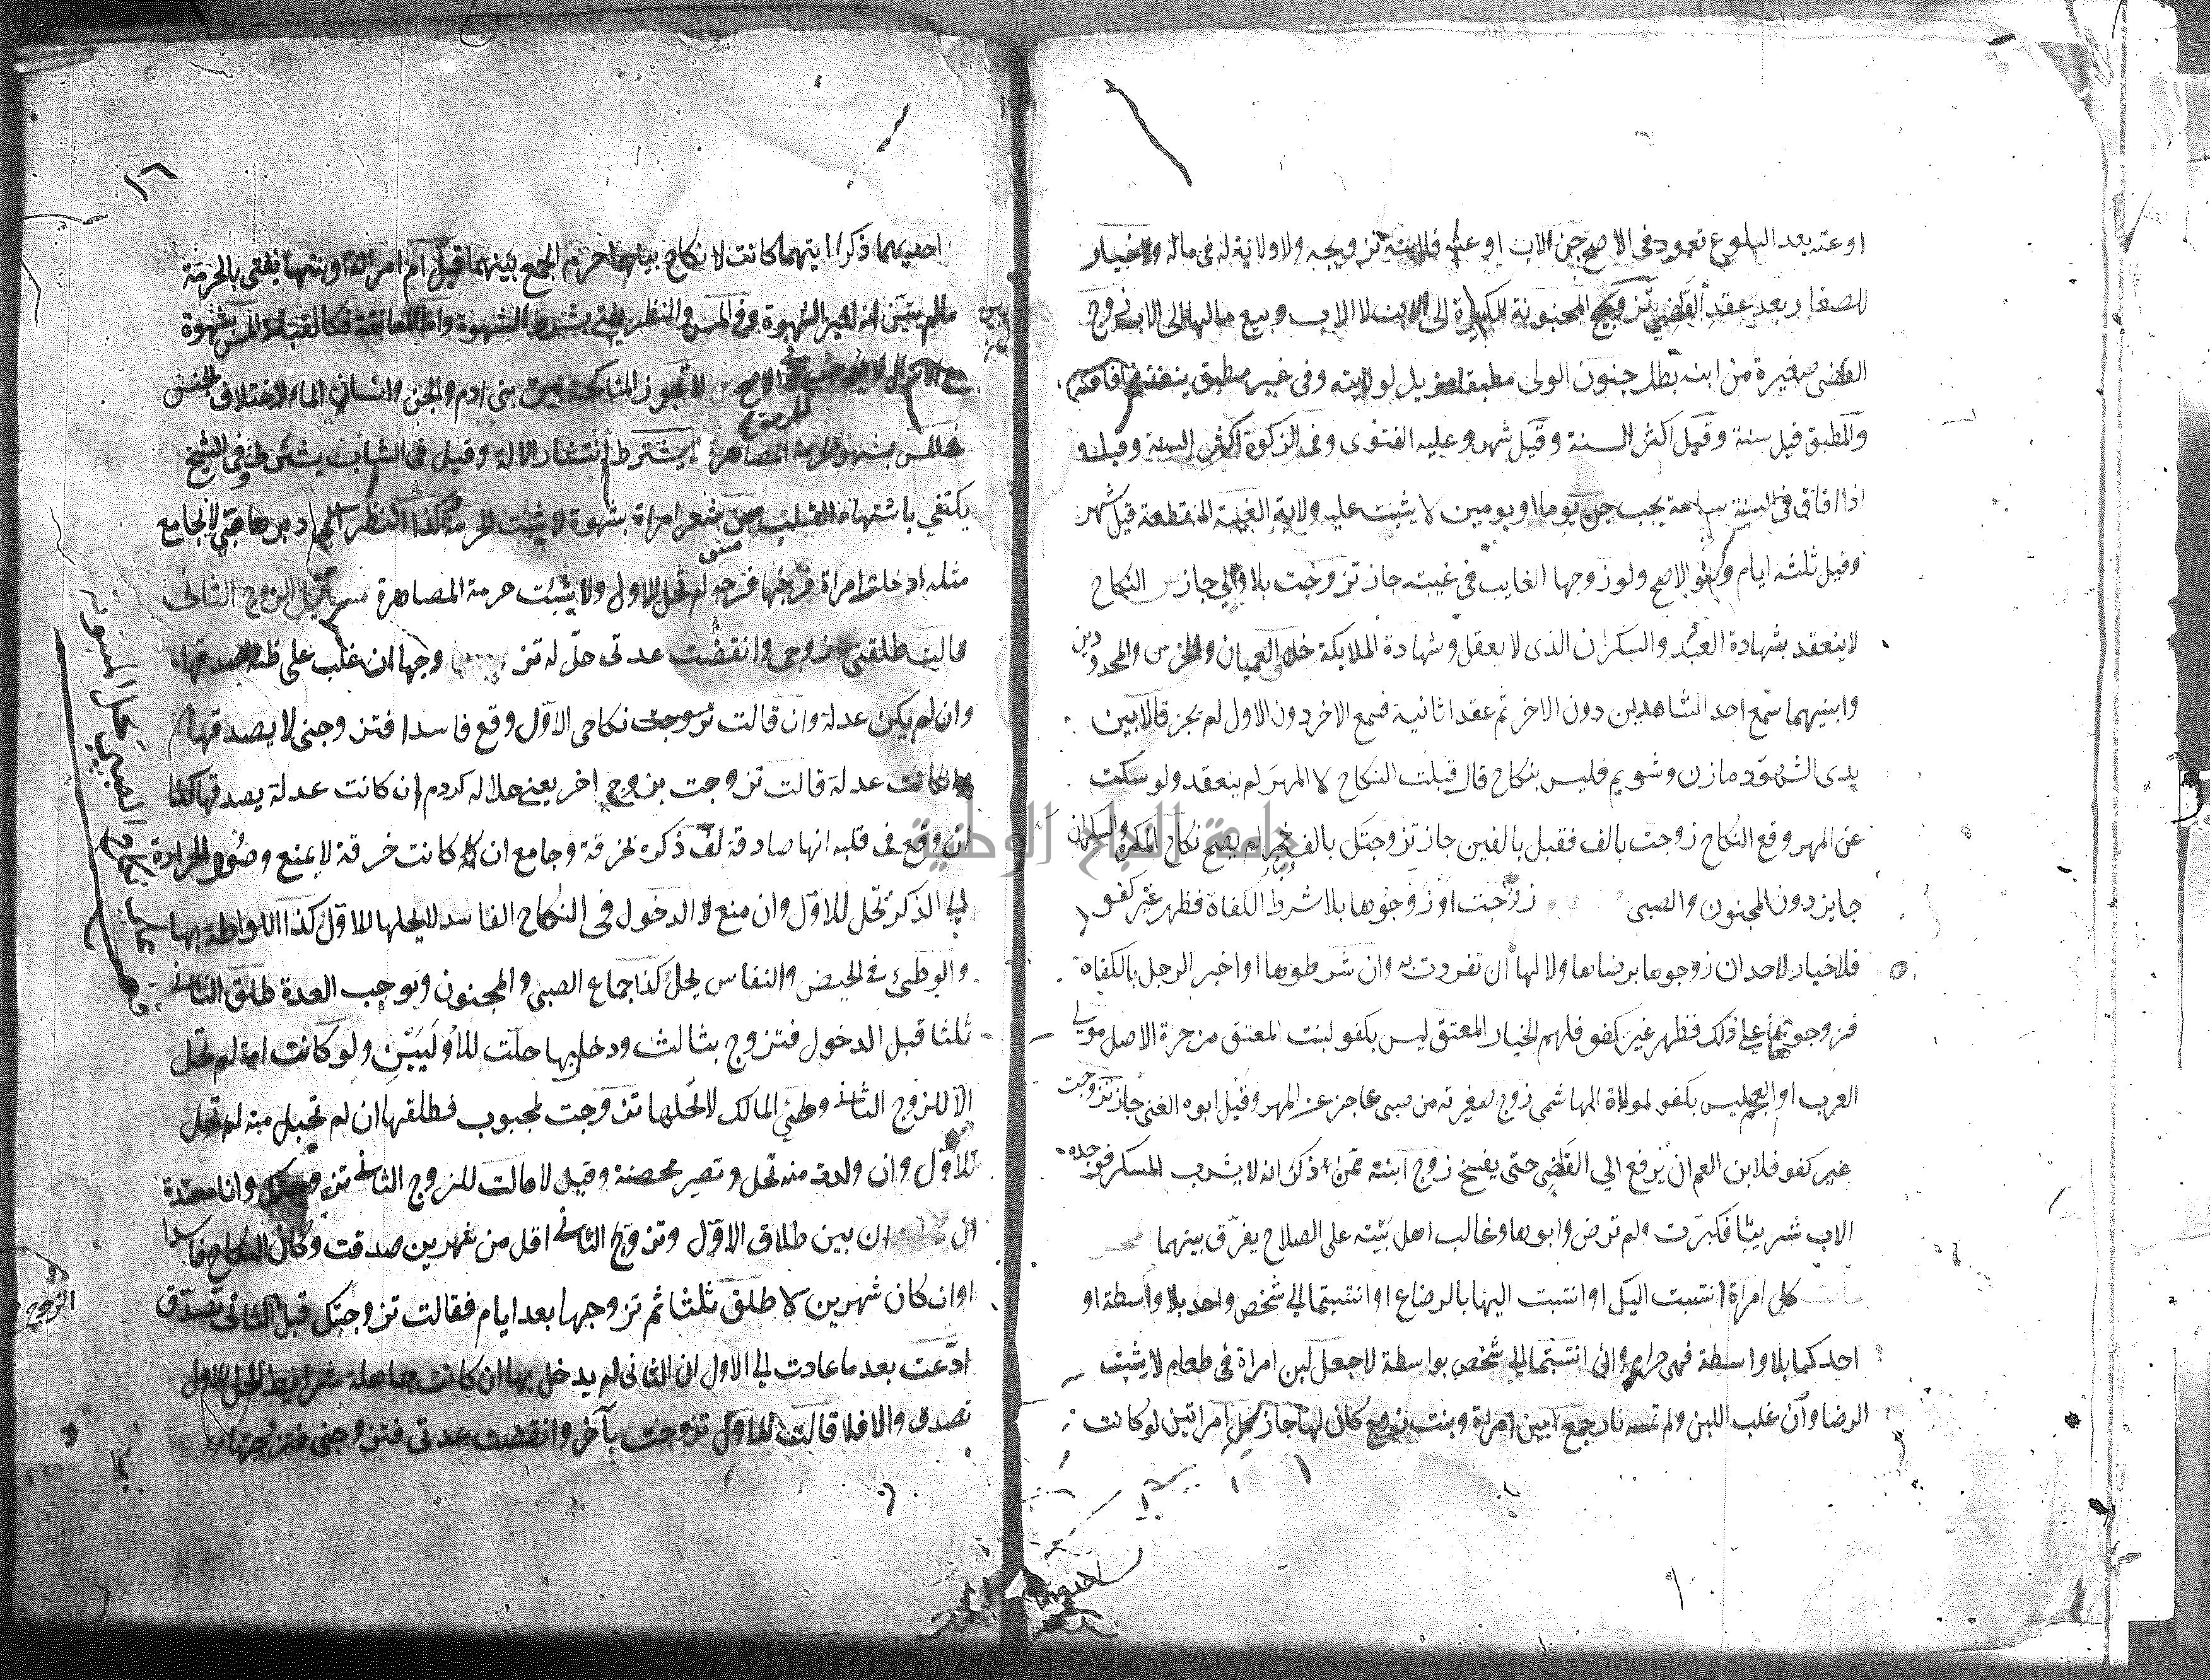 او عته بعد البلوغ تعود في الاصح جن الاب او عته فلابنه تزويجه ولا ولاية له في ماله ولا خيار
للصغار بعد عقد القاضي تزويج المجنونة الكبيرة الى الابن لا الاب وبيع مالها الى الاب زوج
القاضي صغيرة من ابنه بطل جنون الولى مطبقا مزيل لولايته وفي غير مطبق ينفذ في افاقته
والمطبق قيل سنة وقيل اكثر السنة وقيل شهر وعليه الفتوى وفي الزكوة اكثر السنة وقيل و
اذا افاق في السنة ساعة يجب جن يوما او يومين لا يثبت عليه ولاية الغيبة المنقطعة قيل شهر
وقيل ثلثه ايام وهو الاصح ولو زوجها الغايب في غيبته جاز تزوجت بلا ولي جاز النكاح
لا ينعقد بشهادة العبد والسكران الذى لا يعقل وشهادة الملايكة خلا العميان والخرس والمحدودين
وابنيهما سمع احد الشاهدين دون الاخر ثم عقد ثانية فسمع الاخر دون الاول لم يجز قالا بين
يدى الشهود مازن وشويم فليس بنكاح قال قبلت النكاح لا المهر لم ينعقد ولو سكت
عن المهر وقع النكاح زوجت بالف فقبل بالفين جاز تزوجتك بالف يصح نكاح المكره والسكران
جايز دون المجنون والصبى زوجت او زوجوها بلا شرط الكفاة فظهر غير كفو
فلا خيار لاحد ان زوجوها برضاها ولا لها ان تفردت به وان شرطوها او اخبر الرجل بالكفاة
فزوجوها على ذلك فظهر غير كفو فلهم الخيار المعتق ليس بكفو لبنت المعتق من حرة الاصل موالي
العرب او العجم ليس بكفو لمولاة الهاشمى زوج صغيرته من صبى عاجز عن المهر وقبل ابوه الغنى جاز تزوجت
غير كفو فلابن العم ان يرفع الي القاضي حتى يفسخ زوج ابنته ممن ذكر انه لا يشرب المسكر فوجده
الاب شريبا فكبرت ولم ترض وابوها وغالب اهل بيته على الصلاح يفرق بينهما
كل امراة انتسبت اليك او انتسبت اليها بالرضاع او انتسبتما الي شخص واحد بلا واسطة او
احدكما بلا واسطة فهى حرام وان انتسبتما الي شخص بواسطة لا جعل لبن امراة في طعام لا يثبت
الرضا وان غلب اللبن ولم تمسه نار جمع بين امراة وبنت زوج كان لها جاز كل امراتين لو كانت
احديهما ذكرا ايتهما كانت لا نكاح بينهما حرم الجمع بينهما قبل ام امراته او بنتها يفتى بالحرمة
مالم يتبين انه لغير الشهوة وفي المس والنظر يفتي بشرط الشهوة واما المعانقة فكالقبلة المس بشهوة
مع الانزال لا يوجب الاصح لا تجوز المناكحة بين بنى ادم والجن وانسان الماء لاختلاف الجنس
في المس بشهوة لحرمة المصاهرة يشترط انتشار الالة وقيل في الشاب يشترط وفي الشيخ
يكتفي باشتهاء القلب مس شعر امراة بشهوة لا يثبت الحرمة كذا النظر الى دبرها صبي لا يجامع
مثله ادخلت امراة فرجها فرجه لم تحل للاول ولا يثبت حرمة المصاهرة الزوج الثانى
قالت طلقني زوجى وانقضت عدتى حل له تزوجها ان غلب على ظنه صدقها
وان لم يكن عدلة وان قالت تزوجت نكاحى الاول وقع فاسدا فتزوجنى لا يصدقها
وان كانت عدلة قالت تزوجت بزوج اخر يعنى حلاله كردم ان كانت عدلة يصدقها كذا
ان وقع في قلبه انها صادقة لف ذكره بخرقة وجامع ان كانت خرقة لا يمنع وصول الحرارة
الي الذكر تحل للاول وان منع لا الدخول في النكاح الفاسد لا يحلها للاول كذا اللواطة بها
والوطئ في الحيض والنفاس يحل كذا جماع الصبى والمجنون ويوجب العدة طلق الثاني
ثلثا قبل الدخول فتزوج بثالث ودخل بها حلت للاوليين ولو كانت امة لم تحل
الا للزوج الثاني وطئ المالك لا تحلها تزوجت لمجبوب فطلقها ان لم تحبل منه لم تحل
للاول وان ولدت منه تحل وتصير محصنة وقيل لا قالت للزوج الثاني تزوجتك وانا معتدة
ان كان بين طلاق الاول وتزوج الثاني اقل من شهرين صدقت وكان النكاح فاسدا
او ان كان شهرين لا طلق ثلثا ثم تزوجها بعد ايام فقالت تزوجتك قبل الثانى تصدق
ادعت بعد ما عادت الي الاول ان الثانى لم يدخل بها ان كانت جاهلة شرايط الحل للاول
تصدق والا فلا قالت للاول تزوجت بآخر وانقضت عدتى فتزوجنى فتزوجها
الزوج
جامعة النجاح الوطنية